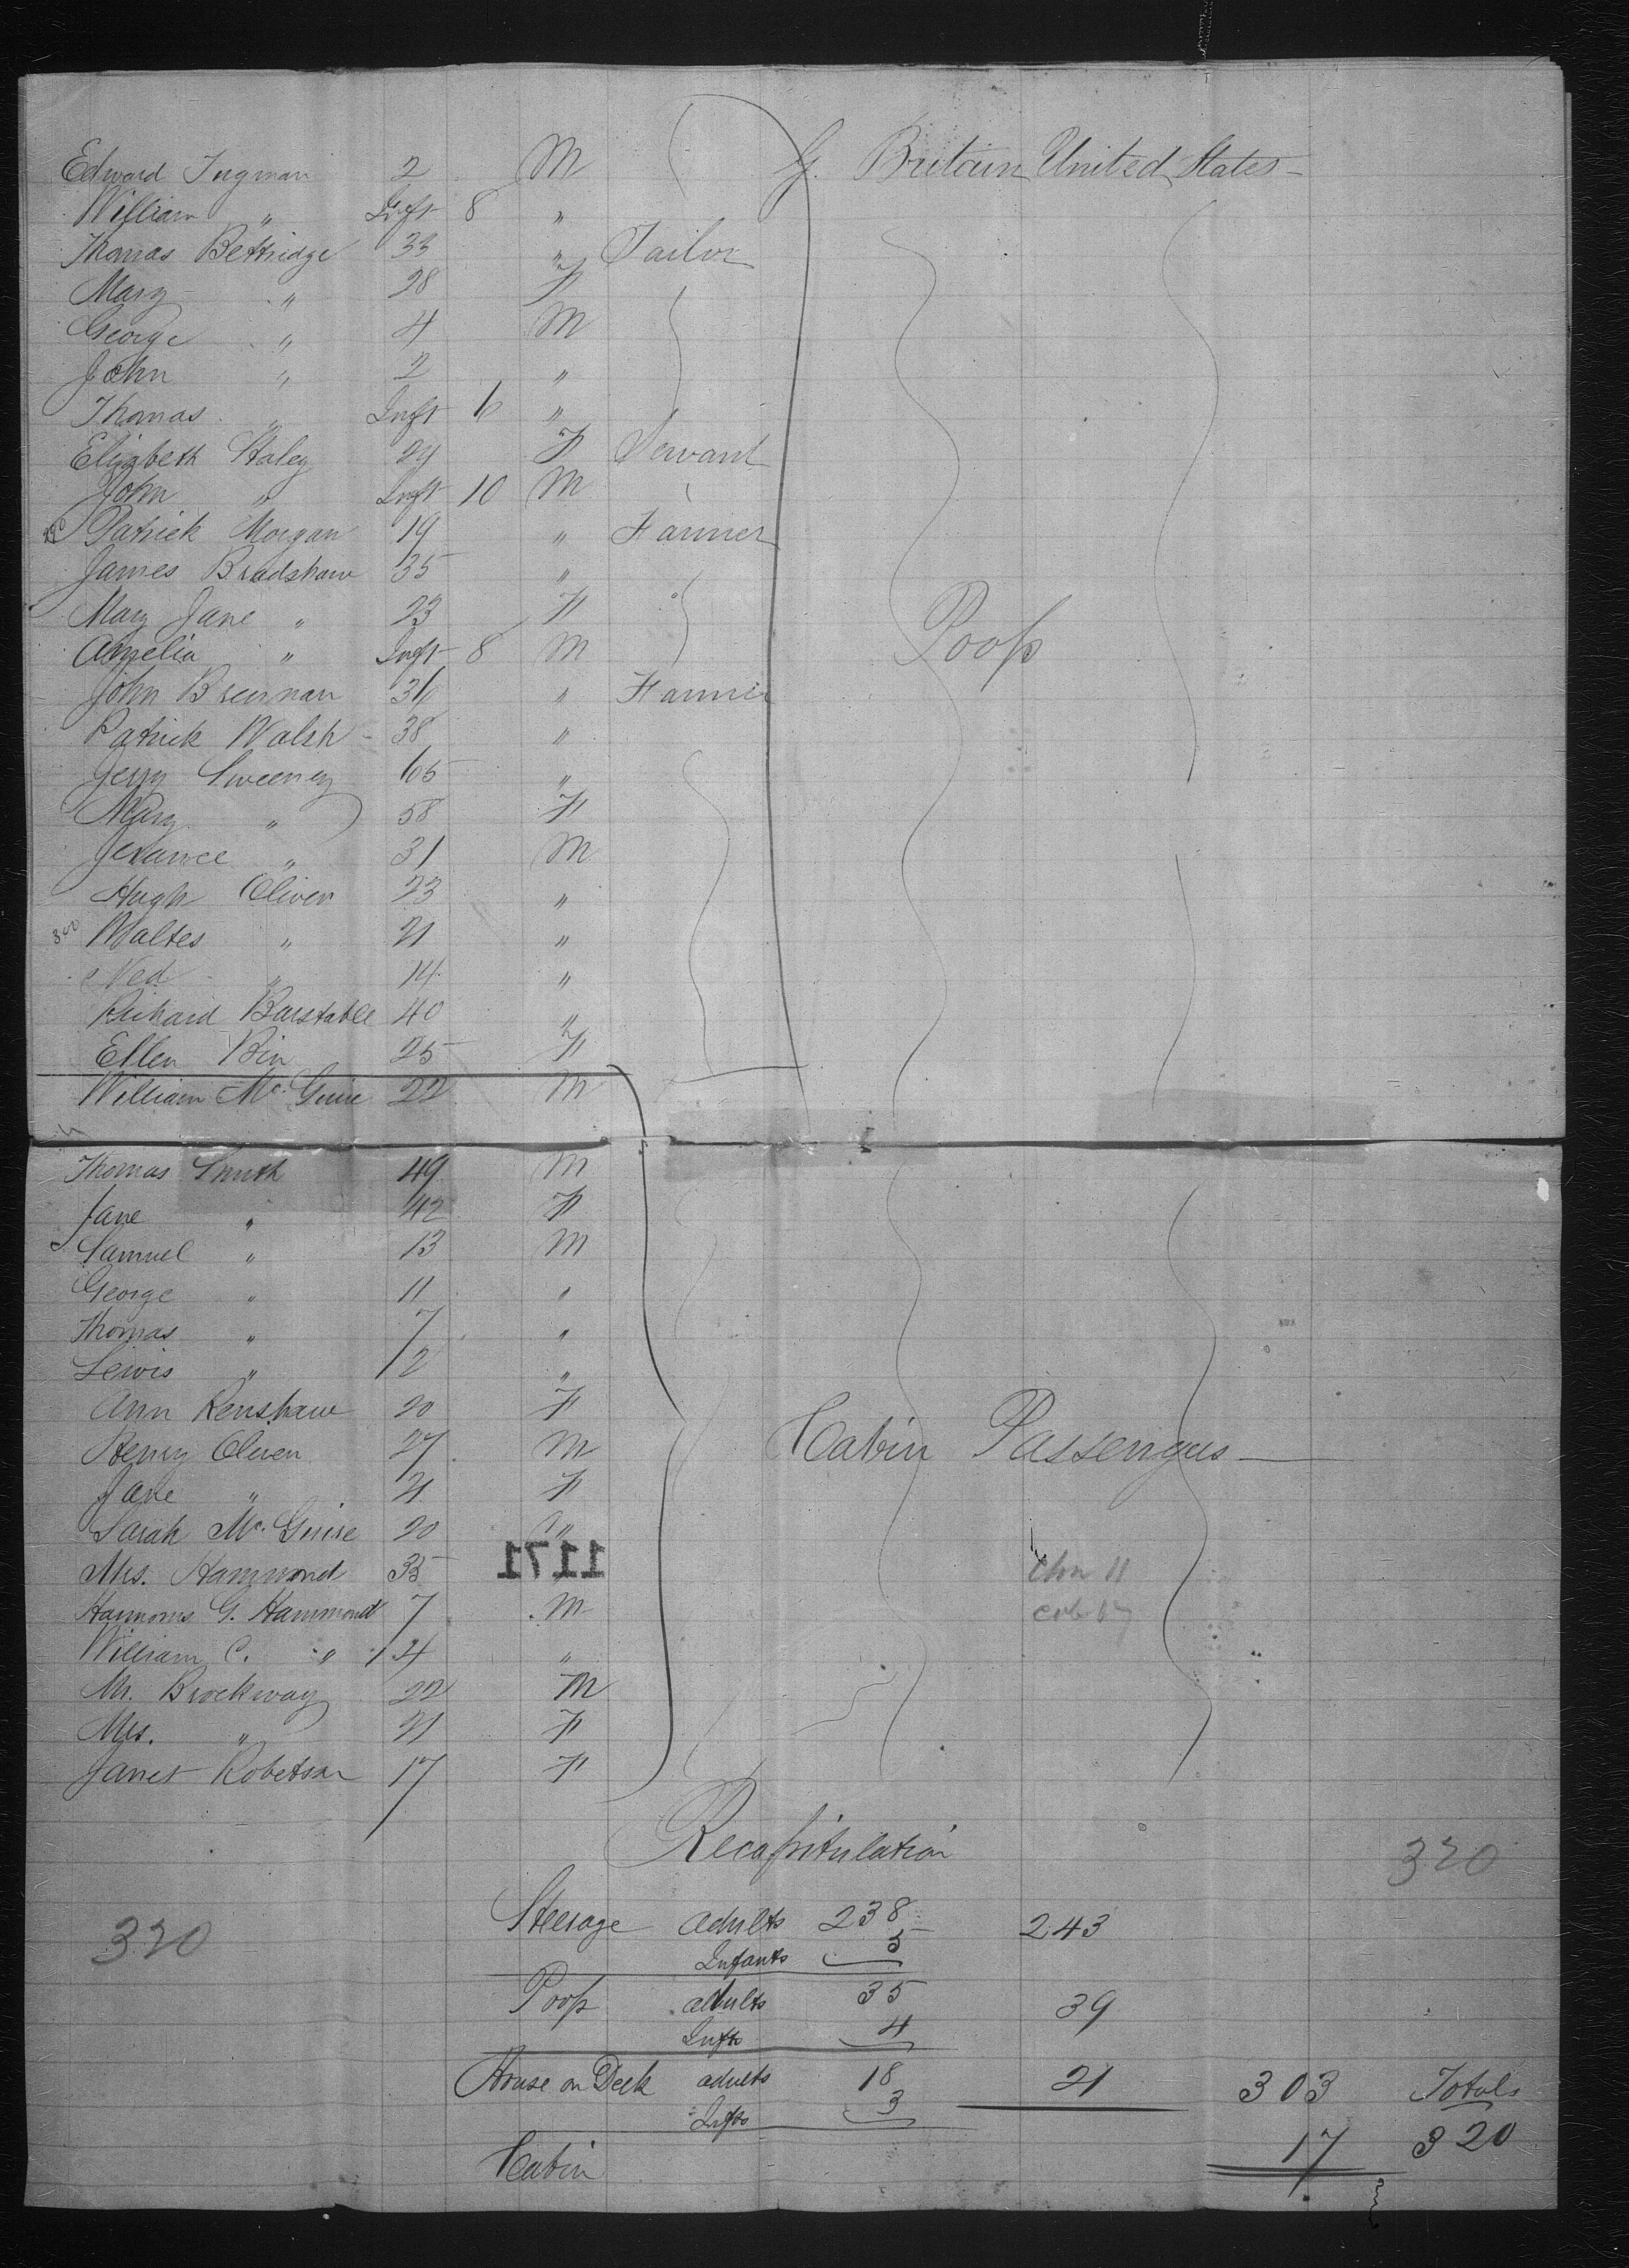 Edward Ingman 2 M G. Britain United States
William " Inft 8 "
Thomas Bettridge 33 " Tailor
Mary " 28 F
George " 4 M
John " 2 "
Thomas " Inft 6 "
Elizabeth Staley 24 F Servant
John " Inft 10 M
Patrick Morgan 19 " Farmer
James Bradshaw 35 "
Mary Jane " 23 F Poop
Amelia " Inft 8 M
John Brennan 36 " Farmer
Patrick Walsh 38 "
Jerry Sweeney 65 "
Mary " 58 F
" 31 M
Hugh Oliver 23 "
300 Walter " 21 "
Ned " 14 "
Richard Barstable 40 "
Ellen 25 F
William Mc. Guire 22 M
Thomas Smith 49 M
Jane " 42 F
Samuel " 13 M
George " 11 "
Thomas " 7 "
Lewis " 2 "
Ann Renshaw 20 F
Henry Oliver 27 M Cabin Passengers
Jane " 21 F
Sarah Mc. Guire 20 "
Mrs. Hammond 35 1171
G. Hammond 7 M
William C. " 4 "
Mr. Brockway 22 M
Mrs. " 21 F
Janet Robetson 17 F
Recapitulation
320
Steerage adults 238 243
320
Infants 5
Poop adults 35 39
Infts 4
House on Deck adults 18 21 303 Totals
Infts 3
Cabin 17 320